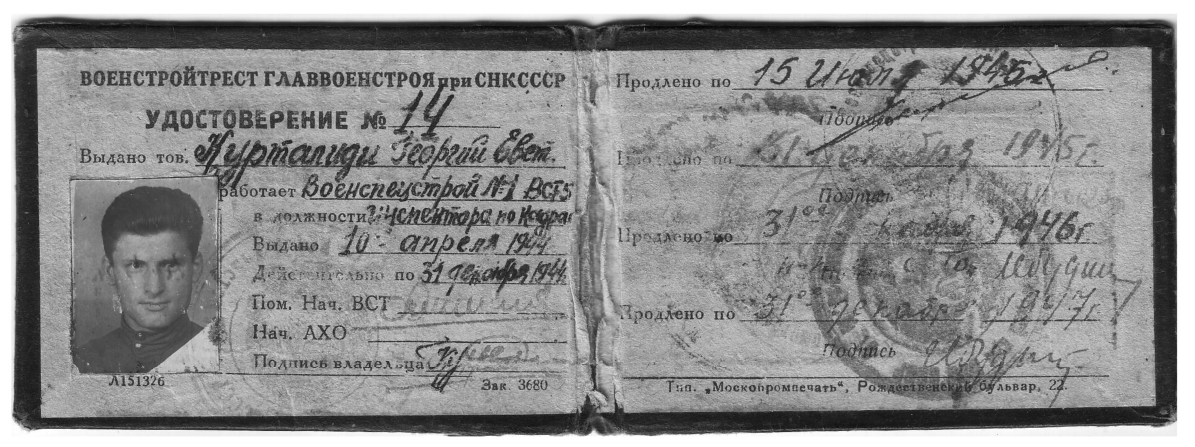 ВОЕНСТРОЙТРЕСТ ГЛАВВОЕНСТРОЯ при СНКСССР
УДОСТОВЕРЕНИЕ № 14
Выдано тов. Курталиди Георгий Евст.
работает Военспецстрой №1 ВСТ5
в должности Инспектора по Кадрам
Выдано 10 апреля 1944
Действительно по 31 декабря 1944
Пом. Нач. ВСТ
Нач. АХО
Подпись владельца
Л151326
Зак. 3680
Продлено по 15 Июля 1945 г
Подпись
Продлено по 31 декабря 1945 г.
Подпись
Продлено по 31го 1946 г
Продлено по 31го декабря 1947 г.
Подпись
Тип. „Москопромпечать“, Рождественский бульвар, 22.